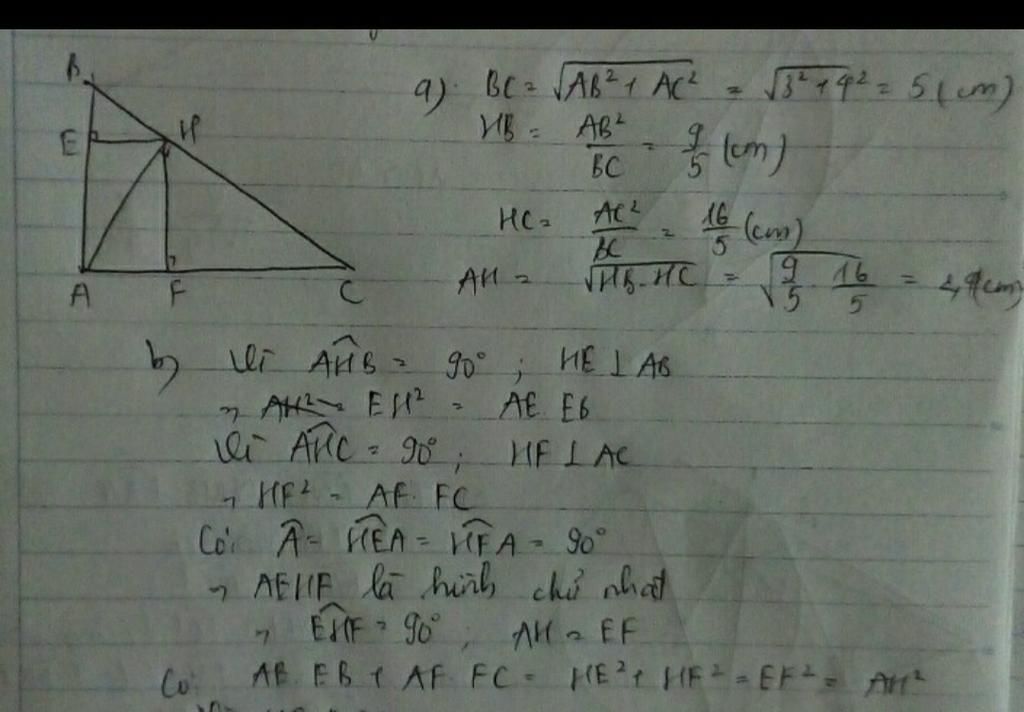 B
E
H
A
F
C
a) BC = √(AB² + AC²) = √(3² + 4²) = 5 (cm)
HB = AB²/BC = 9/5 (cm)
HC = AC²/BC = 16/5 (cm)
AH = √(HB.HC) = √(9/5 16/5) = 2,4 (cm)
b) Vì AHB = 90° ; HE ⊥ AB
→ AH² = EH² = AE.EB
Vì AHC = 90° ; HF ⊥ AC
→ HF² = AF.FC
Có: Â = HEA = HFA = 90°
→ AEHF là hình chữ nhật
→ EHF = 90° ; AH = EF
Có: AE.EB + AF.FC = HE² + HF² = EF² = AH²